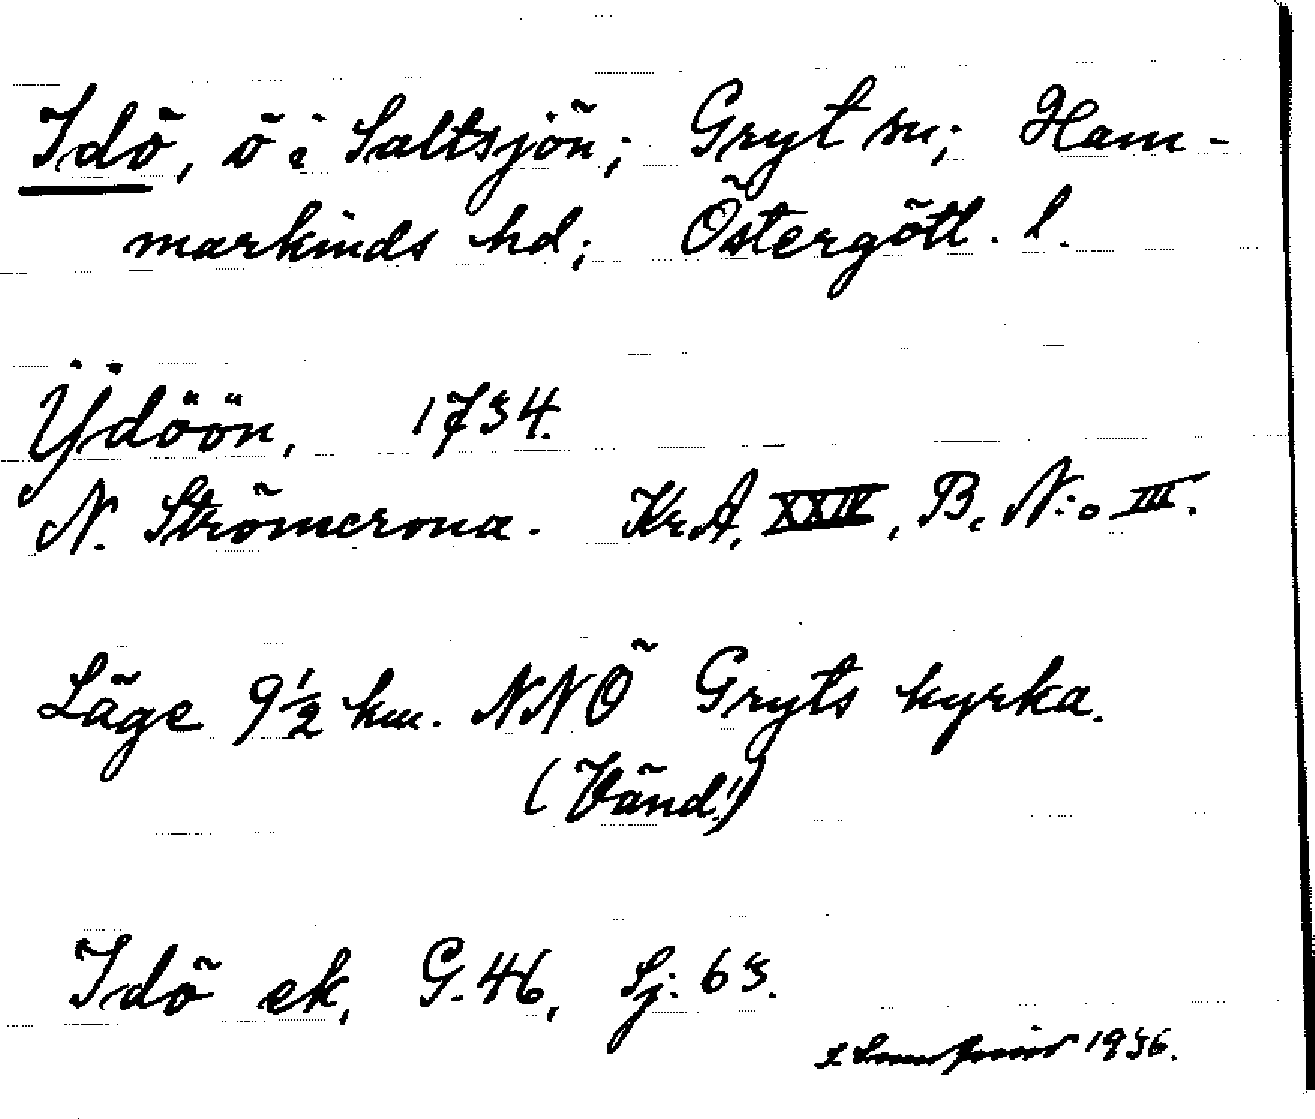 Idö, ö i Saltsjön; Gryt sn; Ham-
markinds hd; Östergötl. l.
Ÿdöön, 1734.
N. Strömcrona. Kr.A, XXIV, B, N:o III.
Läge 9½ km. NNÖ Gryts kyrka.
(Vänd!)
Idö ek, G. 46, Sj: 63.
1936.